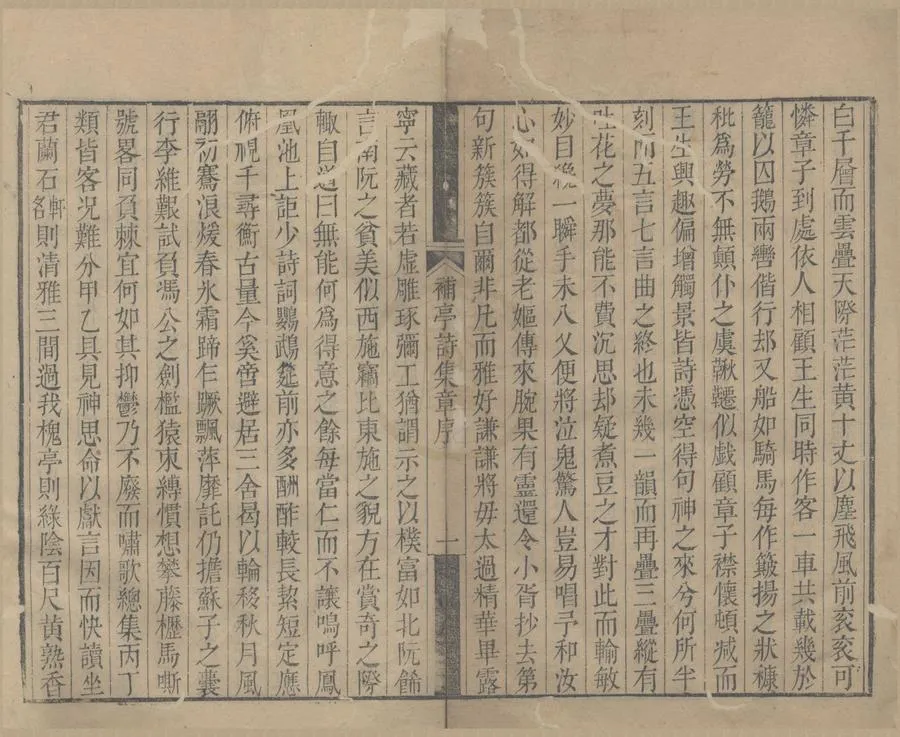 白千層而雲疊天際茫茫黄十丈以塵飛風前衮衮可
憐章子到處依人相顧王生同時作客一車共載幾於
籠以囚鵝兩轡偕行却又船如騎馬每作簸揚之狀糠
秕為勞不無顛仆之虞鞦韆似戲顧章子襟懷頓减而
王生興趣偏增觸景皆詩憑空得句神之來兮何所半
刻而五言七言曲之終也未幾一韻而再疊三疊縱有
吐花之夢那能不費沉思却疑煮豆之才對此而輸敏
妙目纔一瞬手未八乂便將泣鬼驚人豈易唱予和汝
心如得解都從老嫗傳來腕果有靈還令小胥抄去第
句新簇簇自爾非凡而雅好謙謙將毋太過精華畢露
補亭詩集章序
一
寧云藏者若虛雕琢彌工猶謂示之以樸富如北阮餙
言南阮之貧美似西施竊比東施之貌方在賞奇之際
輙自道曰無能何為得意之餘每當仁而不讓嗚呼鳳
凰池上詎少詩詞鸚鵡筵前亦多酬酢較長絜短定應
俯視千尋衡古量今奚啻避居三舍曷以輪移秋月風
翮初騫浪煖春氷霜蹄乍蹶飄萍靡託仍擔蘇子之囊
行李維艱試負馮公之劍檻猿束縛慣想攀藤櫪馬嘶
號畧同負棘宜何如其抑鬱乃不廢而嘯歌總集丙丁
類皆客况難分甲乙具見神思命以獻言因而快讀坐
君蘭石軒名則清雅三間過我槐亭則綠陰百尺黄熟香